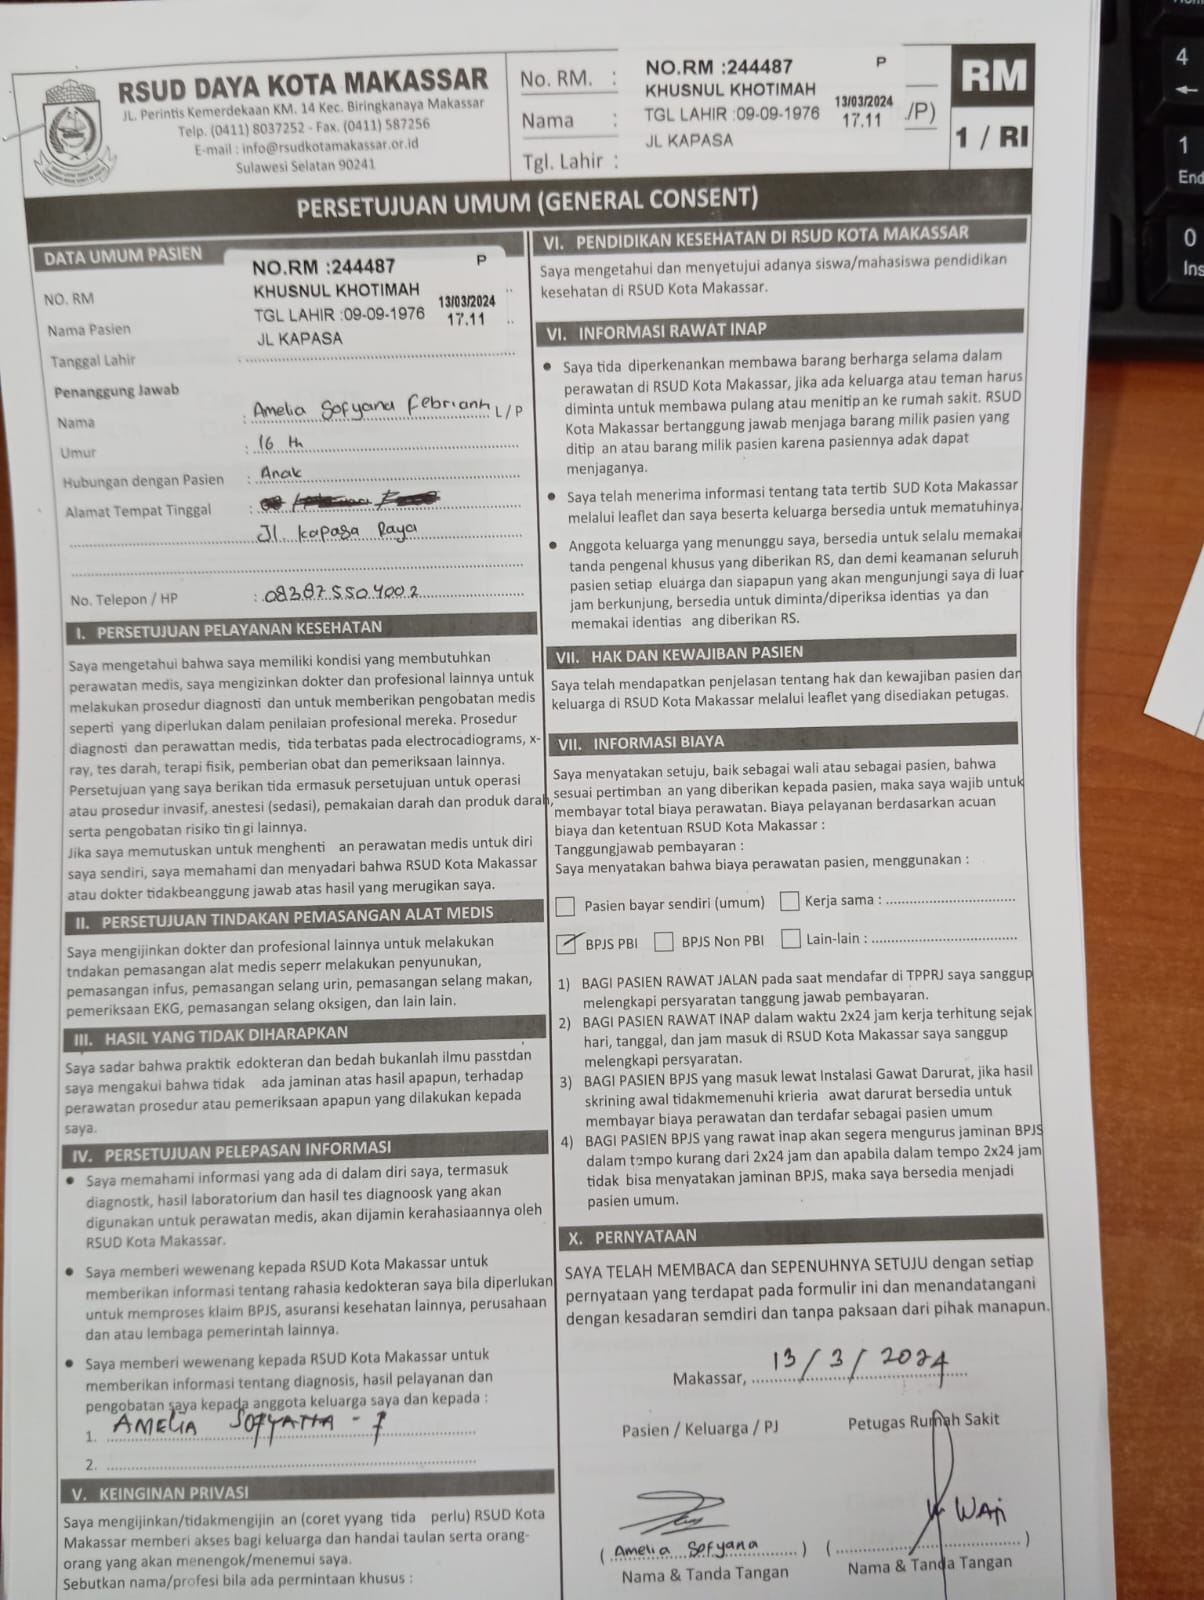 RSUD DAYA KOTA MAKASSAR
JL. Perintis Kemerdekaan KM. 14 Kec. Biringkanaya Makassar
Telp. (0411) 8037252 - Fax. (0411) 587256
E-mail : info@rsudkotamakassar.or.id
Sulawesi Selatan 90241
No. RM. :
Nama :
Tgl. Lahir :
NO.RM :244487 P
KHUSNUL KHOTIMAH
TGL LAHIR :09-09-1976 13/03/2024 17.11
JL KAPASA
/P)
RM
1 / RI
PERSETUJUAN UMUM (GENERAL CONSENT)
DATA UMUM PASIEN
NO. RM
Nama Pasien
Tanggal Lahir :
NO.RM :244487 P
KHUSNUL KHOTIMAH
TGL LAHIR :09-09-1976 13/03/2024 17.11
JL KAPASA
Penanggung Jawab
Nama : Amelia Sofyana Febrianti L/P
Umur : 16 th
Hubungan dengan Pasien : Anak
Alamat Tempat Tinggal :
Jl. Kapasa Raya
No. Telepon / HP : 083875504002
I. PERSETUJUAN PELAYANAN KESEHATAN
Saya mengetahui bahwa saya memiliki kondisi yang membutuhkan
perawatan medis, saya mengizinkan dokter dan profesional lainnya untuk
melakukan prosedur diagnosti dan untuk memberikan pengobatan medis
seperti yang diperlukan dalam penilaian profesional mereka. Prosedur
diagnosti dan perawattan medis, tida terbatas pada electrocadiograms, x-
ray, tes darah, terapi fisik, pemberian obat dan pemeriksaan lainnya.
Persetujuan yang saya berikan tida ermasuk persetujuan untuk operasi
atau prosedur invasif, anestesi (sedasi), pemakaian darah dan produk darah,
serta pengobatan risiko tin gi lainnya.
Jika saya memutuskan untuk menghenti an perawatan medis untuk diri
saya sendiri, saya memahami dan menyadari bahwa RSUD Kota Makassar
atau dokter tidakbeanggung jawab atas hasil yang merugikan saya.
II. PERSETUJUAN TINDAKAN PEMASANGAN ALAT MEDIS
Saya mengijinkan dokter dan profesional lainnya untuk melakukan
tndakan pemasangan alat medis seperr melakukan penyunukan,
pemasangan infus, pemasangan selang urin, pemasangan selang makan,
pemeriksaan EKG, pemasangan selang oksigen, dan lain lain.
III. HASIL YANG TIDAK DIHARAPKAN
Saya sadar bahwa praktik edokteran dan bedah bukanlah ilmu passtdan
saya mengakui bahwa tidak ada jaminan atas hasil apapun, terhadap
perawatan prosedur atau pemeriksaan apapun yang dilakukan kepada
saya.
IV. PERSETUJUAN PELEPASAN INFORMASI
• Saya memahami informasi yang ada di dalam diri saya, termasuk
diagnostk, hasil laboratorium dan hasil tes diagnoosk yang akan
digunakan untuk perawatan medis, akan dijamin kerahasiaannya oleh
RSUD Kota Makassar.
• Saya memberi wewenang kepada RSUD Kota Makassar untuk
memberikan informasi tentang rahasia kedokteran saya bila diperlukan
untuk memproses klaim BPJS, asuransi kesehatan lainnya, perusahaan
dan atau lembaga pemerintah lainnya.
• Saya memberi wewenang kepada RSUD Kota Makassar untuk
memberikan informasi tentang diagnosis, hasil pelayanan dan
pengobatan saya kepada anggota keluarga saya dan kepada :
1. AMELIA SOFYANA - F
2.
V. KEINGINAN PRIVASI
Saya mengijinkan/tidakmengijin an (coret yyang tida perlu) RSUD Kota
Makassar memberi akses bagi keluarga dan handai taulan serta orang-
orang yang akan menengok/menemui saya.
Sebutkan nama/profesi bila ada permintaan khusus :
VI. PENDIDIKAN KESEHATAN DI RSUD KOTA MAKASSAR
Saya mengetahui dan menyetujui adanya siswa/mahasiswa pendidikan
kesehatan di RSUD Kota Makassar.
VI. INFORMASI RAWAT INAP
• Saya tida diperkenankan membawa barang berharga selama dalam
perawatan di RSUD Kota Makassar, jika ada keluarga atau teman harus
diminta untuk membawa pulang atau menitip an ke rumah sakit. RSUD
Kota Makassar bertanggung jawab menjaga barang milik pasien yang
ditip an atau barang milik pasien karena pasiennya adak dapat
menjaganya.
• Saya telah menerima informasi tentang tata tertib SUD Kota Makassar
melalui leaflet dan saya beserta keluarga bersedia untuk mematuhinya.
• Anggota keluarga yang menunggu saya, bersedia untuk selalu memakai
tanda pengenal khusus yang diberikan RS, dan demi keamanan seluruh
pasien setiap eluarga dan siapapun yang akan mengunjungi saya di luar
jam berkunjung, bersedia untuk diminta/diperiksa identias ya dan
memakai identias ang diberikan RS.
VII. HAK DAN KEWAJIBAN PASIEN
Saya telah mendapatkan penjelasan tentang hak dan kewajiban pasien dan
keluarga di RSUD Kota Makassar melalui leaflet yang disediakan petugas.
VII. INFORMASI BIAYA
Saya menyatakan setuju, baik sebagai wali atau sebagai pasien, bahwa
sesuai pertimban an yang diberikan kepada pasien, maka saya wajib untuk
membayar total biaya perawatan. Biaya pelayanan berdasarkan acuan
biaya dan ketentuan RSUD Kota Makassar :
Tanggungjawab pembayaran :
Saya menyatakan bahwa biaya perawatan pasien, menggunakan :
Pasien bayar sendiri (umum) Kerja sama :
BPJS PBI BPJS Non PBI Lain-lain :
1) BAGI PASIEN RAWAT JALAN pada saat mendafar di TPPRJ saya sanggup
melengkapi persyaratan tanggung jawab pembayaran.
2) BAGI PASIEN RAWAT INAP dalam waktu 2x24 jam kerja terhitung sejak
hari, tanggal, dan jam masuk di RSUD Kota Makassar saya sanggup
melengkapi persyaratan.
3) BAGI PASIEN BPJS yang masuk lewat Instalasi Gawat Darurat, jika hasil
skrining awal tidakmemenuhi krieria awat darurat bersedia untuk
membayar biaya perawatan dan terdafar sebagai pasien umum
4) BAGI PASIEN BPJS yang rawat inap akan segera mengurus jaminan BPJS
dalam tempo kurang dari 2x24 jam dan apabila dalam tempo 2x24 jam
tidak bisa menyatakan jaminan BPJS, maka saya bersedia menjadi
pasien umum.
X. PERNYATAAN
SAYA TELAH MEMBACA dan SEPENUHNYA SETUJU dengan setiap
pernyataan yang terdapat pada formulir ini dan menandatangani
dengan kesadaran semdiri dan tanpa paksaan dari pihak manapun.
Makassar, 13/3/2024
Pasien / Keluarga / PJ Petugas Rumah Sakit
(Amelia Sofyana) ( )
Nama & Tanda Tangan Nama & Tanda Tangan
4
1
End
0
Ins